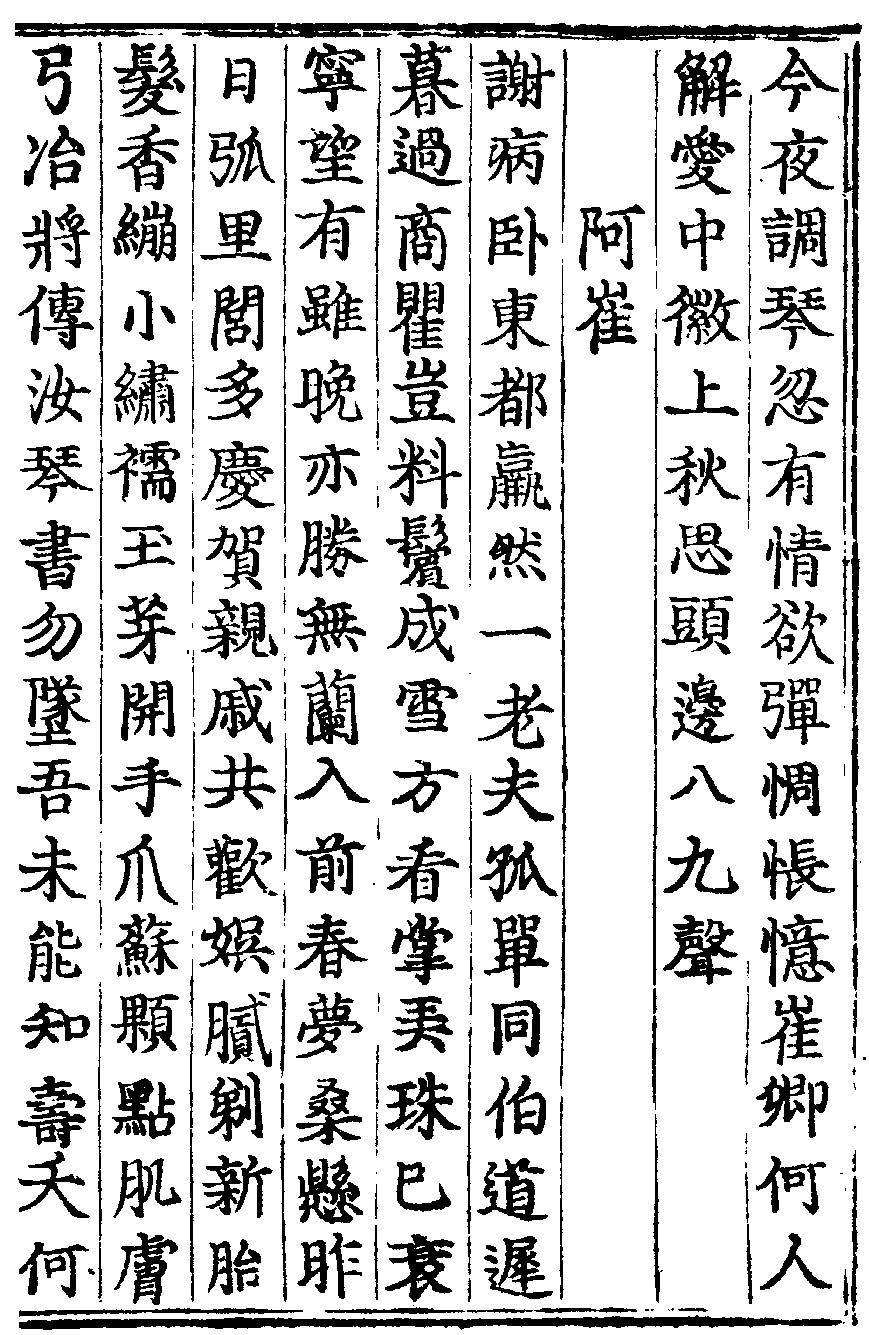 今夜調琴忽有情欲彈惆悵憶崔卿何人
解愛中徽上秋思頭邊八九聲
阿崔
謝病卧東都羸然一老夫孤單同伯道遲
暮過商瞿豈料鬢成雪方看掌弄珠已衰
寧望有雖晚亦勝無蘭入前春夢桑懸昨
日弧里閭多慶賀親戚共歡娯膩剃新胎
髮香繃小繡襦玉芽開手爪蘇顆點肌膚
弓冶將傳汝琴書勿墜吾未能知壽夭何